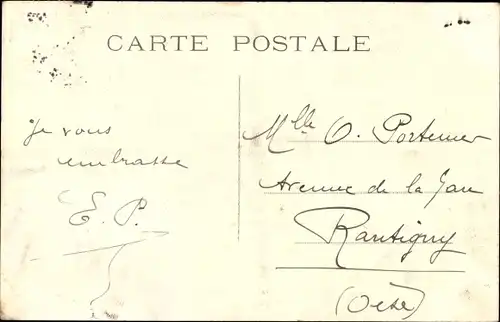 CARTE POSTALE
Je vous
embrasse
E. P.
Mlle O. Portemer
Avenue de la Gare
Rantigny
(Oise)